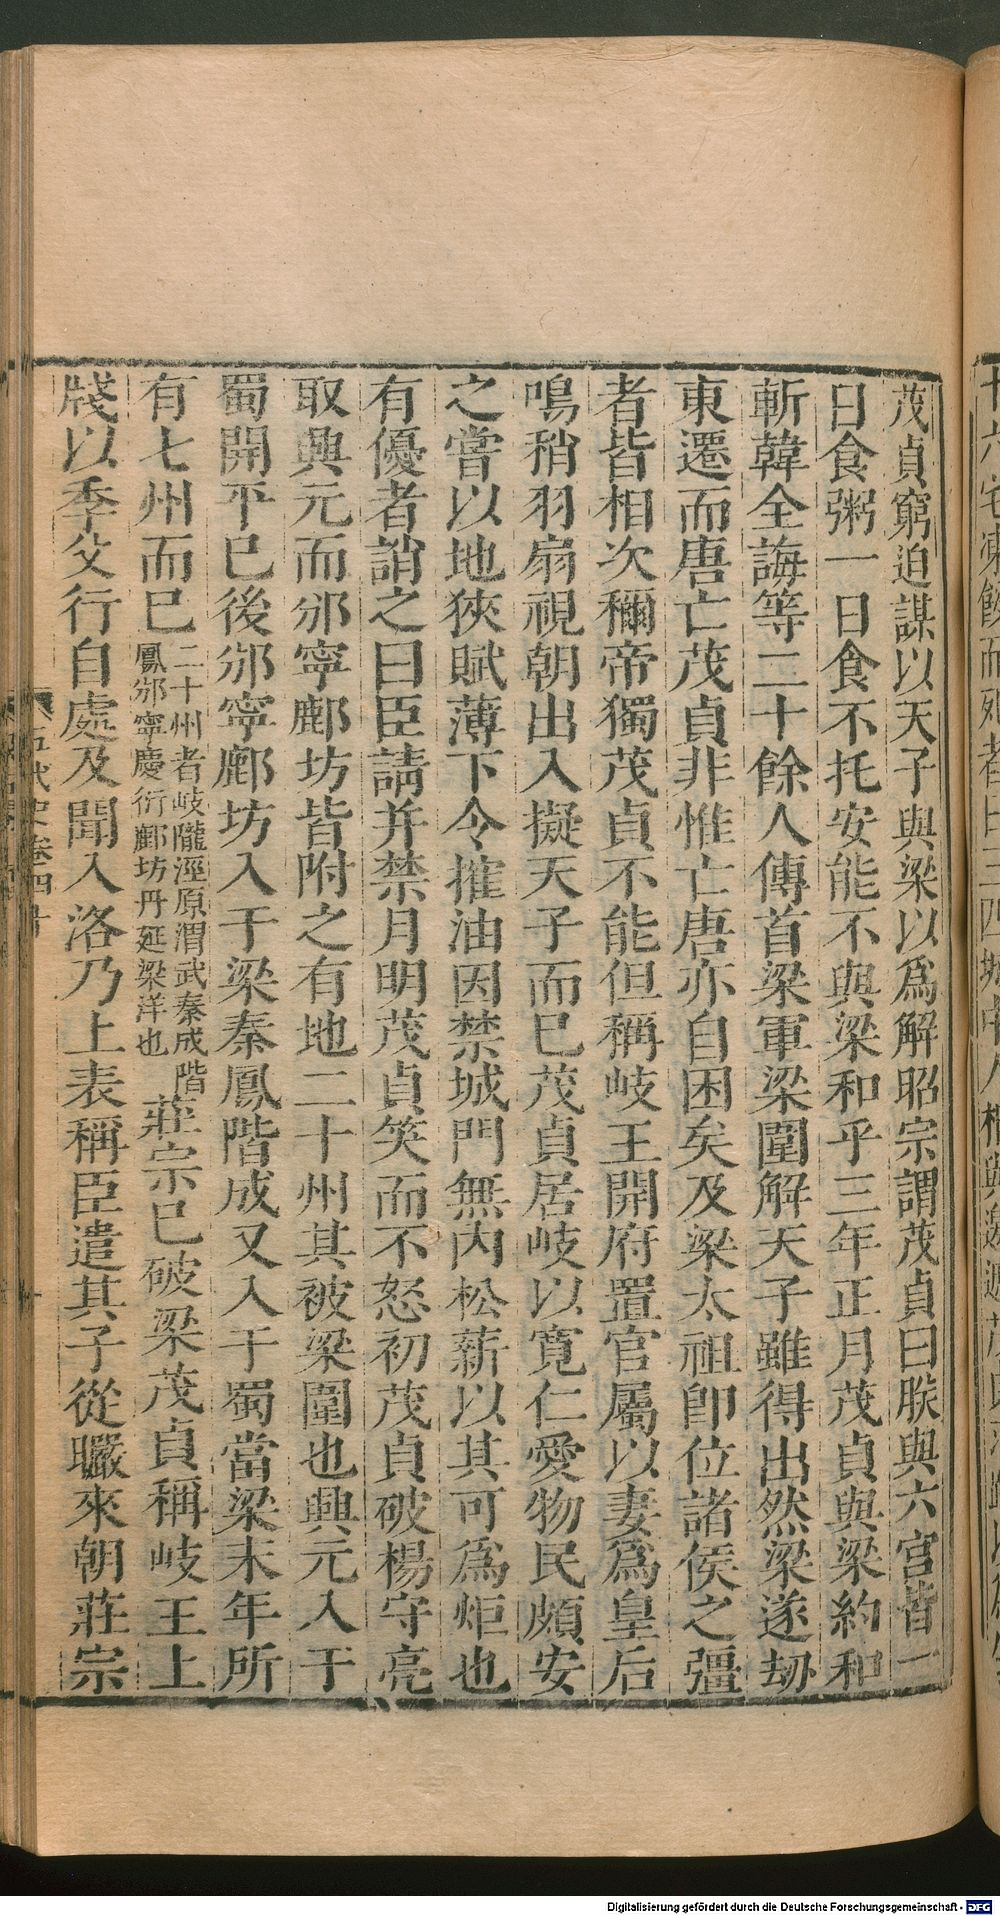 茂貞窮迫謀以天子與梁以爲解昭宗謂茂貞曰朕與六宮皆一
日食粥一日食不托安能不與梁和乎三年正月茂貞與梁約和
斬韓全誨等二十餘人傳首梁軍梁圍解天子雖得出然梁遂劫
東遷而唐亡茂貞非惟亡唐亦自困矣及梁太祖卽位諸侯之彊
者皆相次稱帝獨茂貞不能但稱岐王開府置官屬以妻爲皇后
鳴稍羽扇視朝出入擬天子而已茂貞居岐以寬仁愛物民頗安
之嘗以地狹賦薄下令搉油因禁城門無內松薪以其可爲炬也
有優者誚之曰臣請并禁月明茂貞笑而不怒初茂貞破楊守亮
取興元而邠寧鄜坊皆附之有地二十州其被梁圍也興元入于
蜀開平已後邠寧鄜坊入于梁秦鳳階成又入于蜀當梁末年所
有七州而已
二十州者岐隴涇原渭武秦成階
鳳邠寧慶衍鄜坊丹延梁洋也
莊宗已破梁茂貞稱岐王上
牋以季父行自處及聞入洛乃上表稱臣遣其子從曮來朝莊宗
五代史卷四十
Digitalisierung gefördert durch die Deutsche Forschungsgemeinschaft - DFG